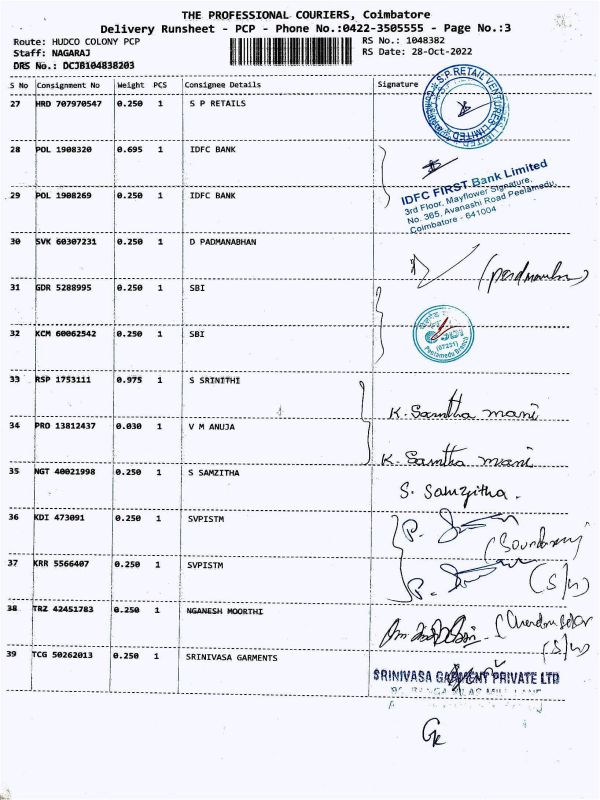 THE PROFESSIONAL COURIERS, Coimbatore
Delivery Runsheet - PCP - Phone No.:0422-3505555 - Page No.:3
Route: HUDCO COLONY PCP
RS No.: 1048382
Staff: NAGARAJ
RS Date: 28-Oct-2022
DRS No.: DCJB104838203
S No Consignment No Weight PCS Consignee Details Signature
27 HRD 707970547 0.250 1 S P RETAILS
S.P RETAIL VENTURES LIMITED
28 POL 1908320 0.695 1 IDFC BANK
29 POL 1908269 0.250 1 IDFC BANK
IDFC FIRST Bank Limited
3rd Floor, Mayflower Signature,
No. 365, Avanashi Road Peelamedu,
Coimbatore - 641004
30 SVK 60307231 0.250 1 D PADMANABHAN
31 GDR 5288995 0.250 1 SBI
32 KCM 60062542 0.250 1 SBI
SBI
(07231)
Peelamedu Branch
33 RSP 1753111 0.975 1 S SRINITHI
K. Samtha mani
34 PRO 13812437 0.030 1 V M ANUJA
K. Samtha mani
35 NGT 40021998 0.250 1 S SAMZITHA
S. Samzitha.
36 KDI 473091 0.250 1 SVPISTM
37 KRR 5566407 0.250 1 SVPISTM
(S/w)
38 TRZ 42451783 0.250 1 NGANESH MOORTHI
(S/w)
39 TCG 50262013 0.250 1 SRINIVASA GARMENTS
SRINIVASA GARMENT PRIVATE LTD